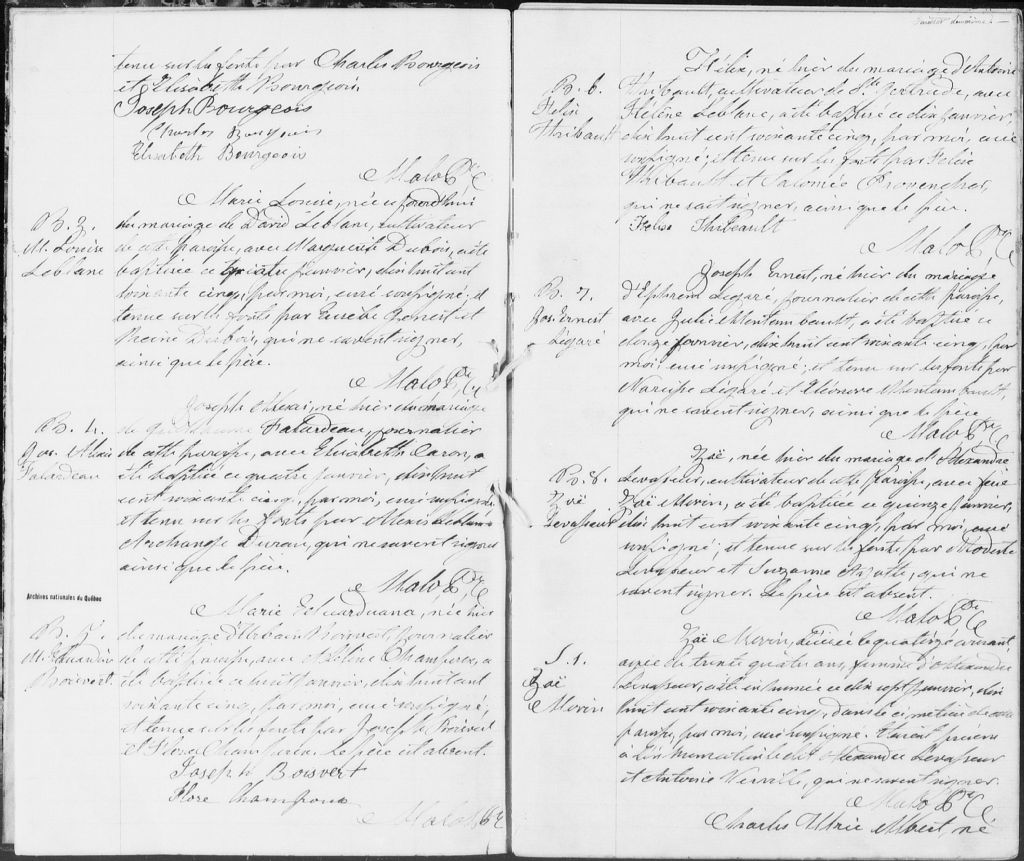 tenu sur les fonts par Charles Bourgeois
et Elisabeth Bourgeois
Joseph Bourgeois
Charles Bourgeois
Elisabeth Bourgeois
Malo Ptre C
B. 3.
M. Louise
Leblanc
Marie Louise, née aujourd'hui
du mariage de David Leblanc, cultivateur
de cette paroisse, avec Marguerite Dubois, a été
baptisée ce janvier, dix huit cent
soixante cinq, par moi, curé soussigné; et
tenue sur les fonts par et
Dubois, qui ne savent signer,
ainsi que le père.
Malo Ptre C
B. 4.
Jos. Alexis
Falardeau
Joseph Alexis, né hier du mariage
de Guillaume Falardeau, journalier
de cette paroisse, avec Elisabeth Caron, a
été baptisé ce quatre janvier, dix huit
cent soixante cinq, par moi, curé soussigné
et tenu sur les fonts par Alexis Leblanc
Archange qui ne savent signer
ainsi que le père.
Malo Ptre C
Archives nationales du Québec
B. 5.
M.
Boisvert
Marie née hier
du mariage d'Urbain Boisvert, journalier
de cette paroisse, avec Céline Champoux, a
été baptisée ce huit janvier, dix huit cent
soixante cinq, par moi, curé soussigné,
et tenue sur les fonts par Joseph Boisvert
et Flore Champoux. Le père est absent.
Joseph Boisvert
Flore Champoux
Malo Ptre C
B. 6.
Félix
Thibault
Félix, né hier du mariage d'Antoine
Thibault, cultivateur de Ste Gertrude, avec
Hélène Leblanc, a été baptisé ce dix janvier
dix huit cent soixante cinq, par moi, curé
soussigné; et tenu sur les fonts par Félix
Thibault et Salomée Provencher,
qui ne sait signer, ainsi que le père.
Félix Thibault
Malo Ptre C
B. 7.
Jos. Ernest
Légaré
Joseph Ernest, né hier du mariage
d'Ephrem Légaré, journalier de cette paroisse,
avec Julie Montambeault, a été baptisé ce
douze janvier, dix huit cent soixante cinq, par
moi, curé soussigné; et tenu sur les fonts par
Narcisse Légaré et Eléonore Montambeault,
qui ne savent signer, ainsi que le père
Malo Ptre C
B. 8.
Zoë
Levasseur
Zoë, née hier du mariage d'Alexandre
Levasseur, cultivateur de cette paroisse, avec feue
Zoë Morin, a été baptisée ce quinze janvier,
dix huit cent soixante cinq, par moi, curé
soussigné; et tenue sur les fonts par Modeste
Levasseur et Suzanne qui ne
savent signer. Le père est absent.
Malo Ptre C
S. 1.
Zoë
Morin
Zoë Morin, décédée le quatorze courant,
agée de trente quatre ans, femme d'Alexandre
Levasseur, a été inhumée ce dix sept janvier, dix
huit cent soixante cinq, dans le cimetière de cette
paroisse, par moi, curé soussigné. Furent présens
à l'inhumation le dit Alexandre Levasseur
et Antoine Verville, qui ne savent signer.
Malo Ptre C
Charles Ulric Albert, né